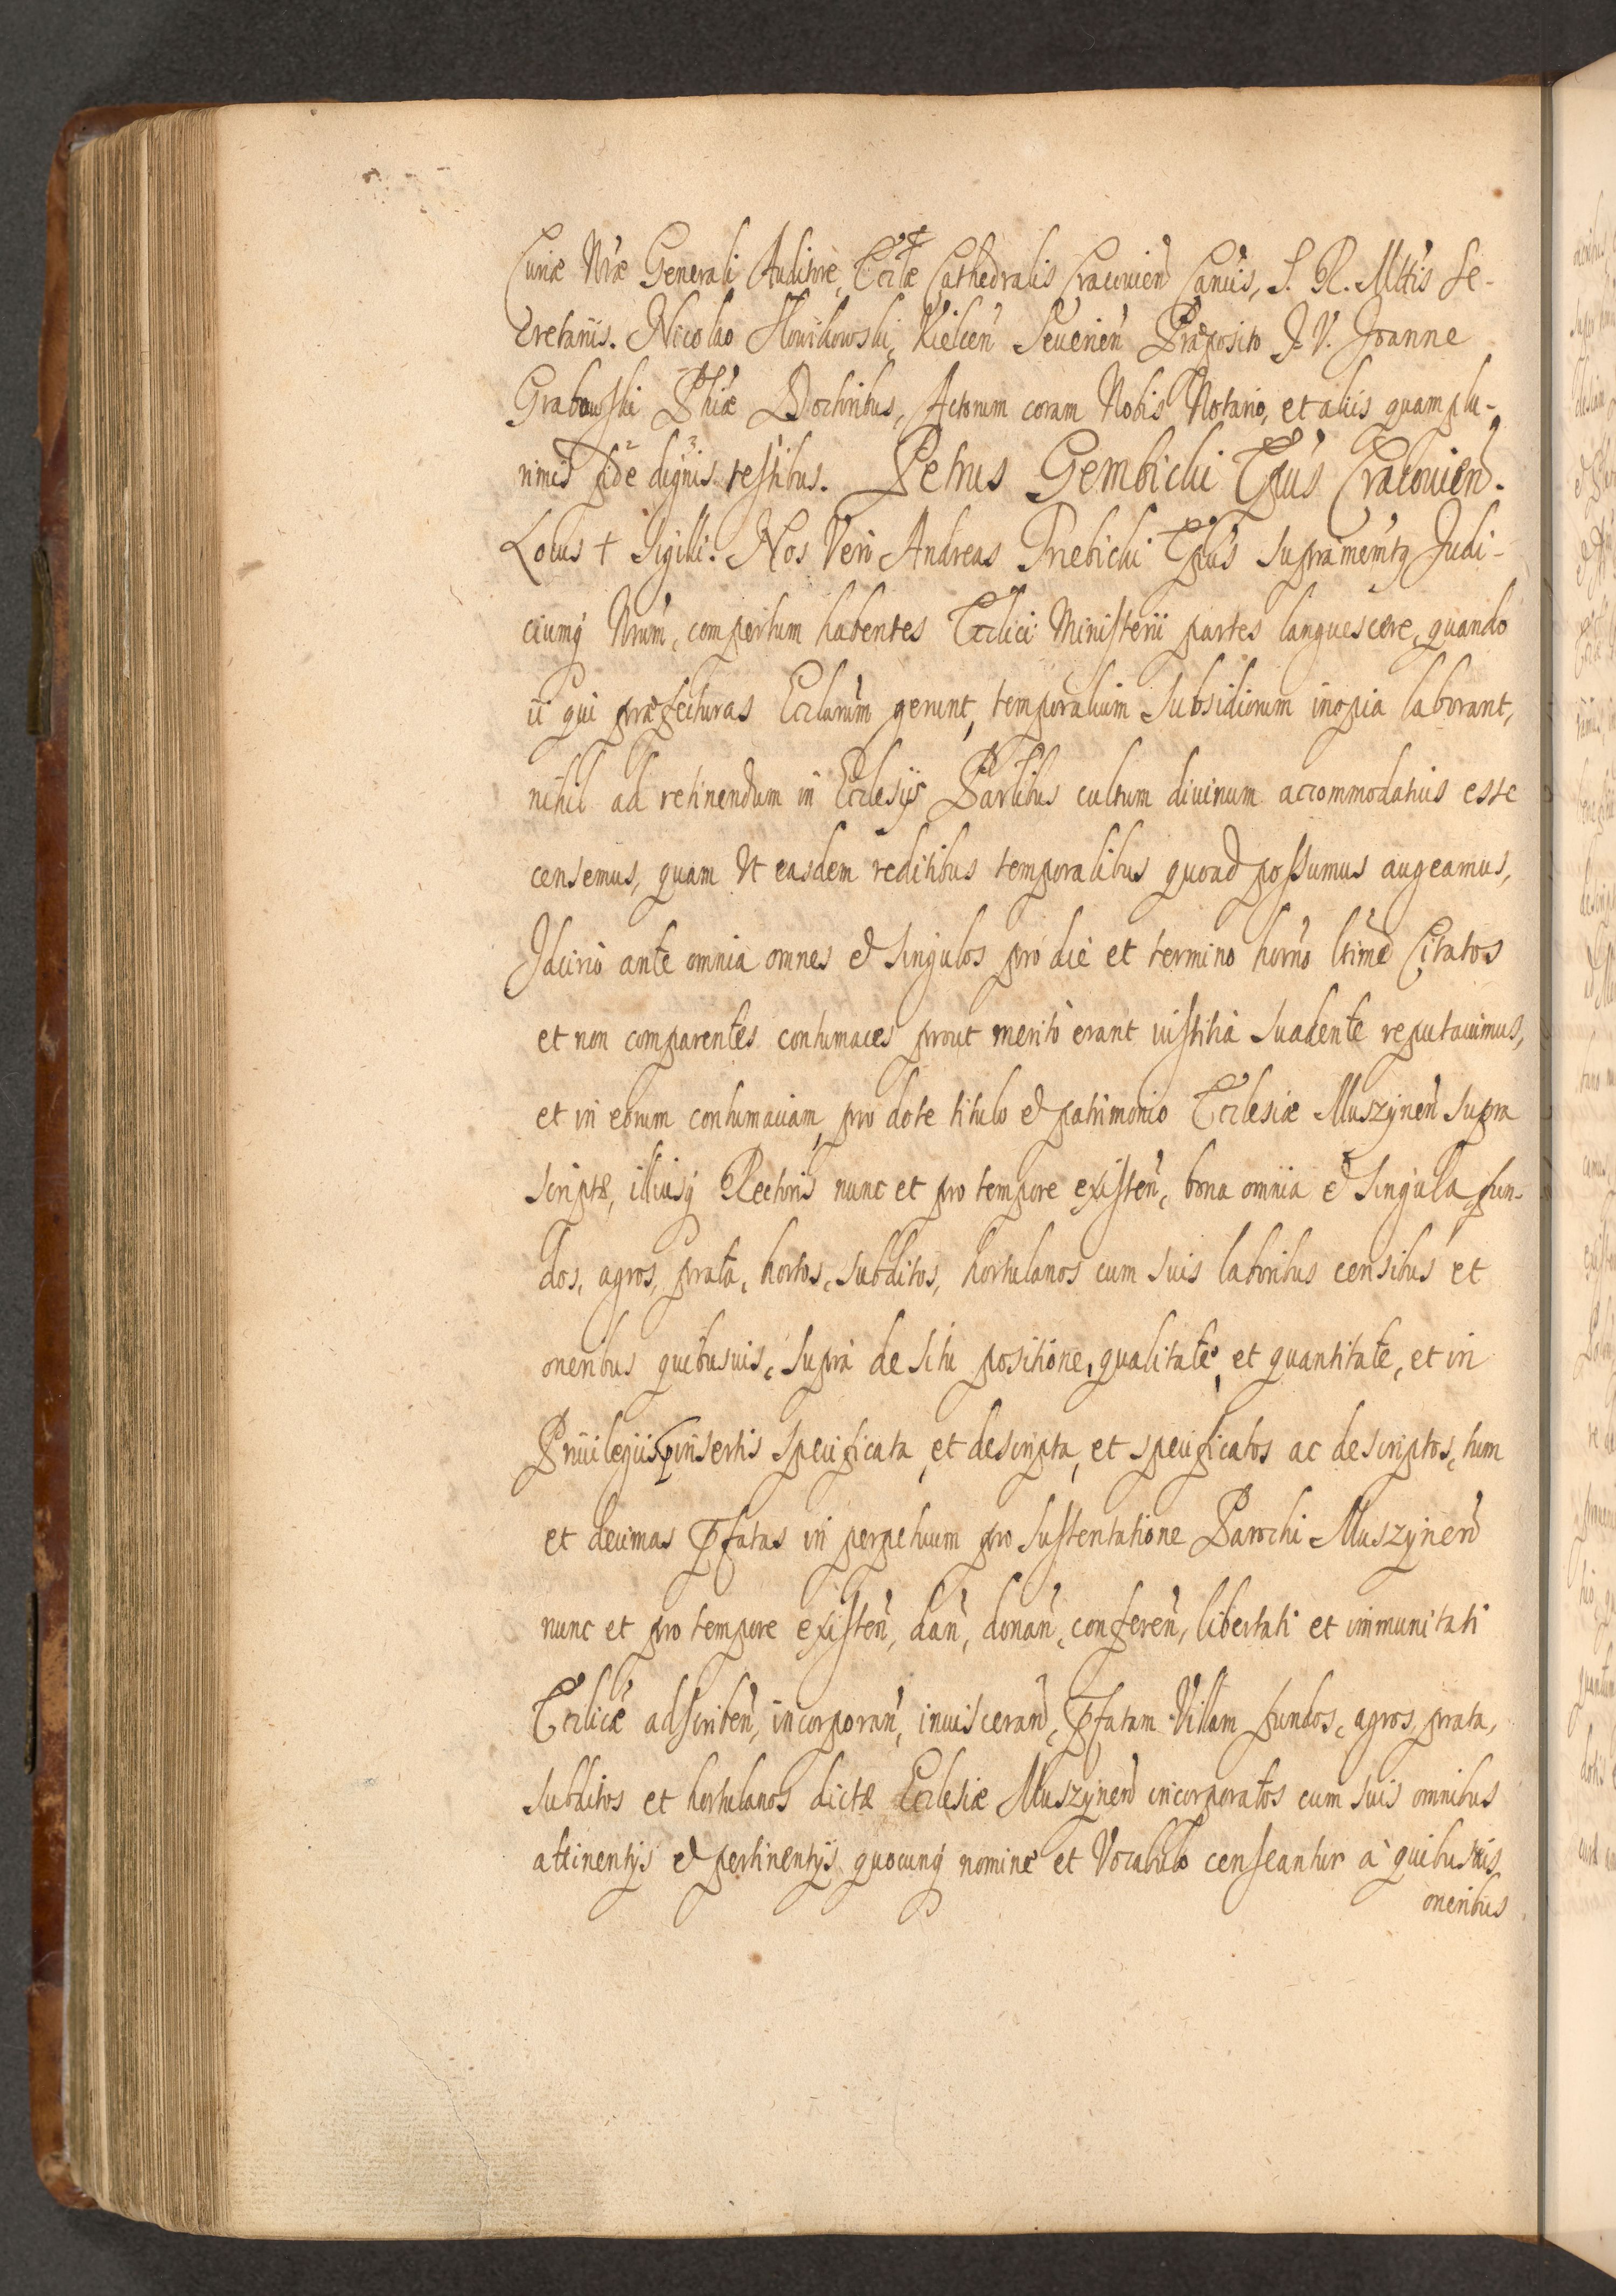 Curiæ Nræ Generali Auditore, Ecclæ Cathedralis Cracovien Canćis, S. R. Mttis Se-
cretariis. Nicolao Slowikowski, Kielcen Sevevien Præposito J. V. Joanne
Grabowski Phiæ Doctoribus, Actorum coram Nobis Notario, et aliis quamplu-
rimis fide dignis testibus. Petrus Gembicki Eṗus Cracovien.
Locus + Sigilli. Nos Vero Andreas Trzebicki Eṗus supramemtq Judi-
ciumq Nrum, compertum habentes Ecclici Ministerii partes languescere, quando
ii qui præfecturas Ecclarum gerunt, temporalium Subsidiorum inopia laborant,
nihil ad retinendum in Ecclesijs Parlibus cultum divinum accommodatius esse
censemus, quam Vt easdem reditibus temporalibus quoad possumus augeamus,
Idcirco ante omnia omnes et Singulos pro die et termino horno ltime Citatos
et non comparentes contumaces prout meritò erant iustitia Suadente reputavimus,
et in eorum contumaciam, pro dote titulo et patrimonio Ecclesiæ Muszynen supra
scriptæ, illiusq Rectoris nunc et pro tempore existen, bona omnia et Singula fun-
dos, agros, prata, hortos, subditos, hortulanos cum suis laboribus censibus et
oneribus quibusvis, Suprà de Situ positione, qualitate, et quantitate, et in
Privilegiis insertis Specificata, et descripta, et specificatos ac descriptos, tum
et decimas p̄fatas in perpetuum pro Sustentatione Parochi Muszynen
nunc et pro tempore existen, dan, donan, conferen, libertati et immunitati
Ecclicæ adscriben, incorporan, inviscerand, p̄fatam Villam fundos, agros, prata,
Subditos et hortulanos dictæ Ecclesiæ Muszynen incorporatos cum suis omnibus
attinentijs et pertinentijs quocunq nomine et Vocabulo censeantur à quibusvis
oneribus